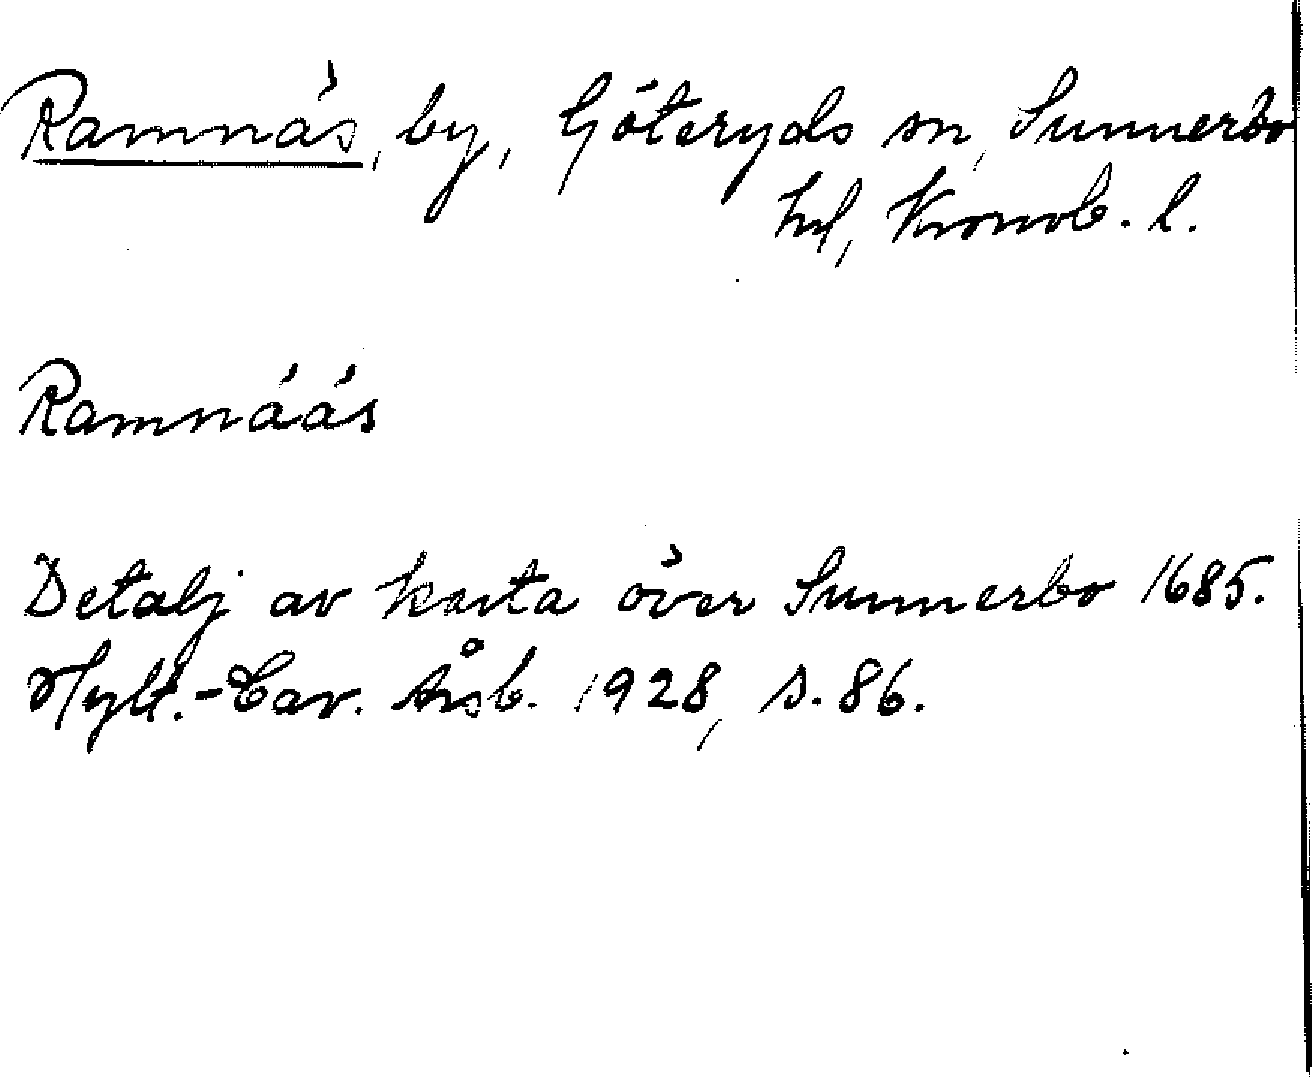 Ramnäs, by, Göteryds sn, Sunnerbo
hd, Kronob. l.
Ramnääs
Detalj av karta över Sunnerbo 1685.
Hylt.-Cav. Årsb. 1928, s. 86.